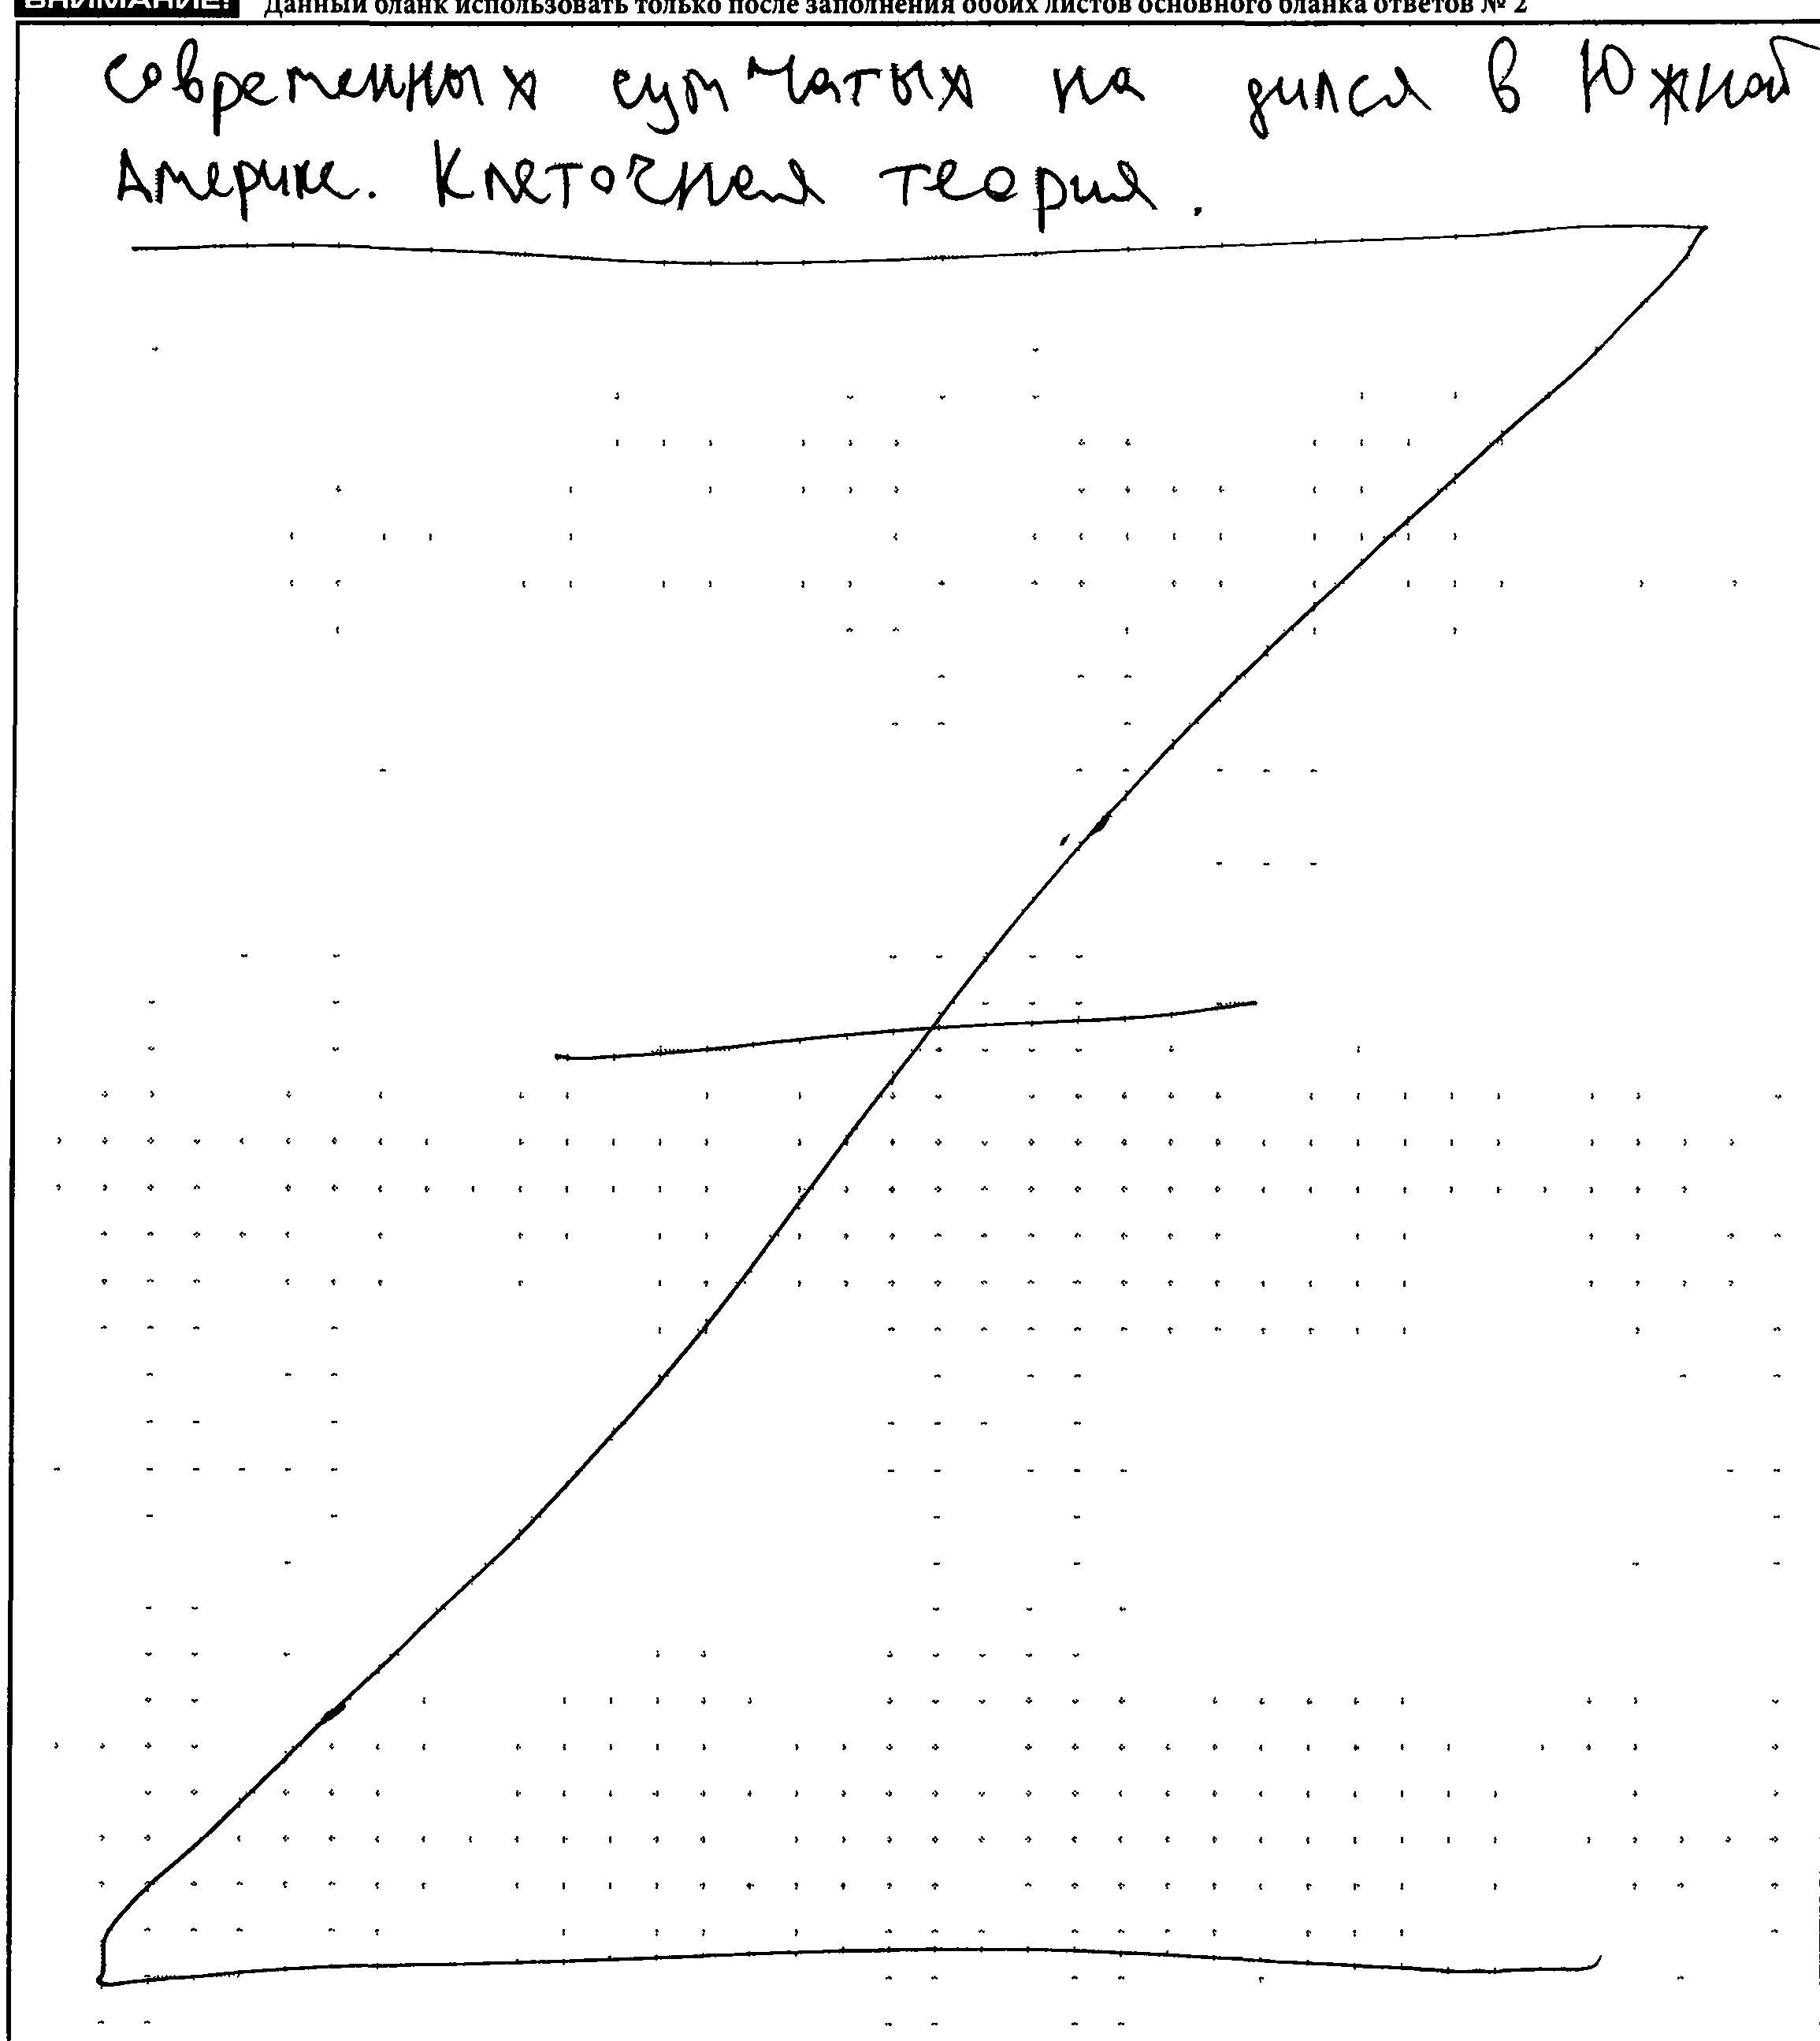 ВНИМАНИЕ! Данный бланк использовать только после заполнения обоих листов основного бланка ответов № 2
современных сумчатых на дился в Южной
Америке. Клеточная теория.